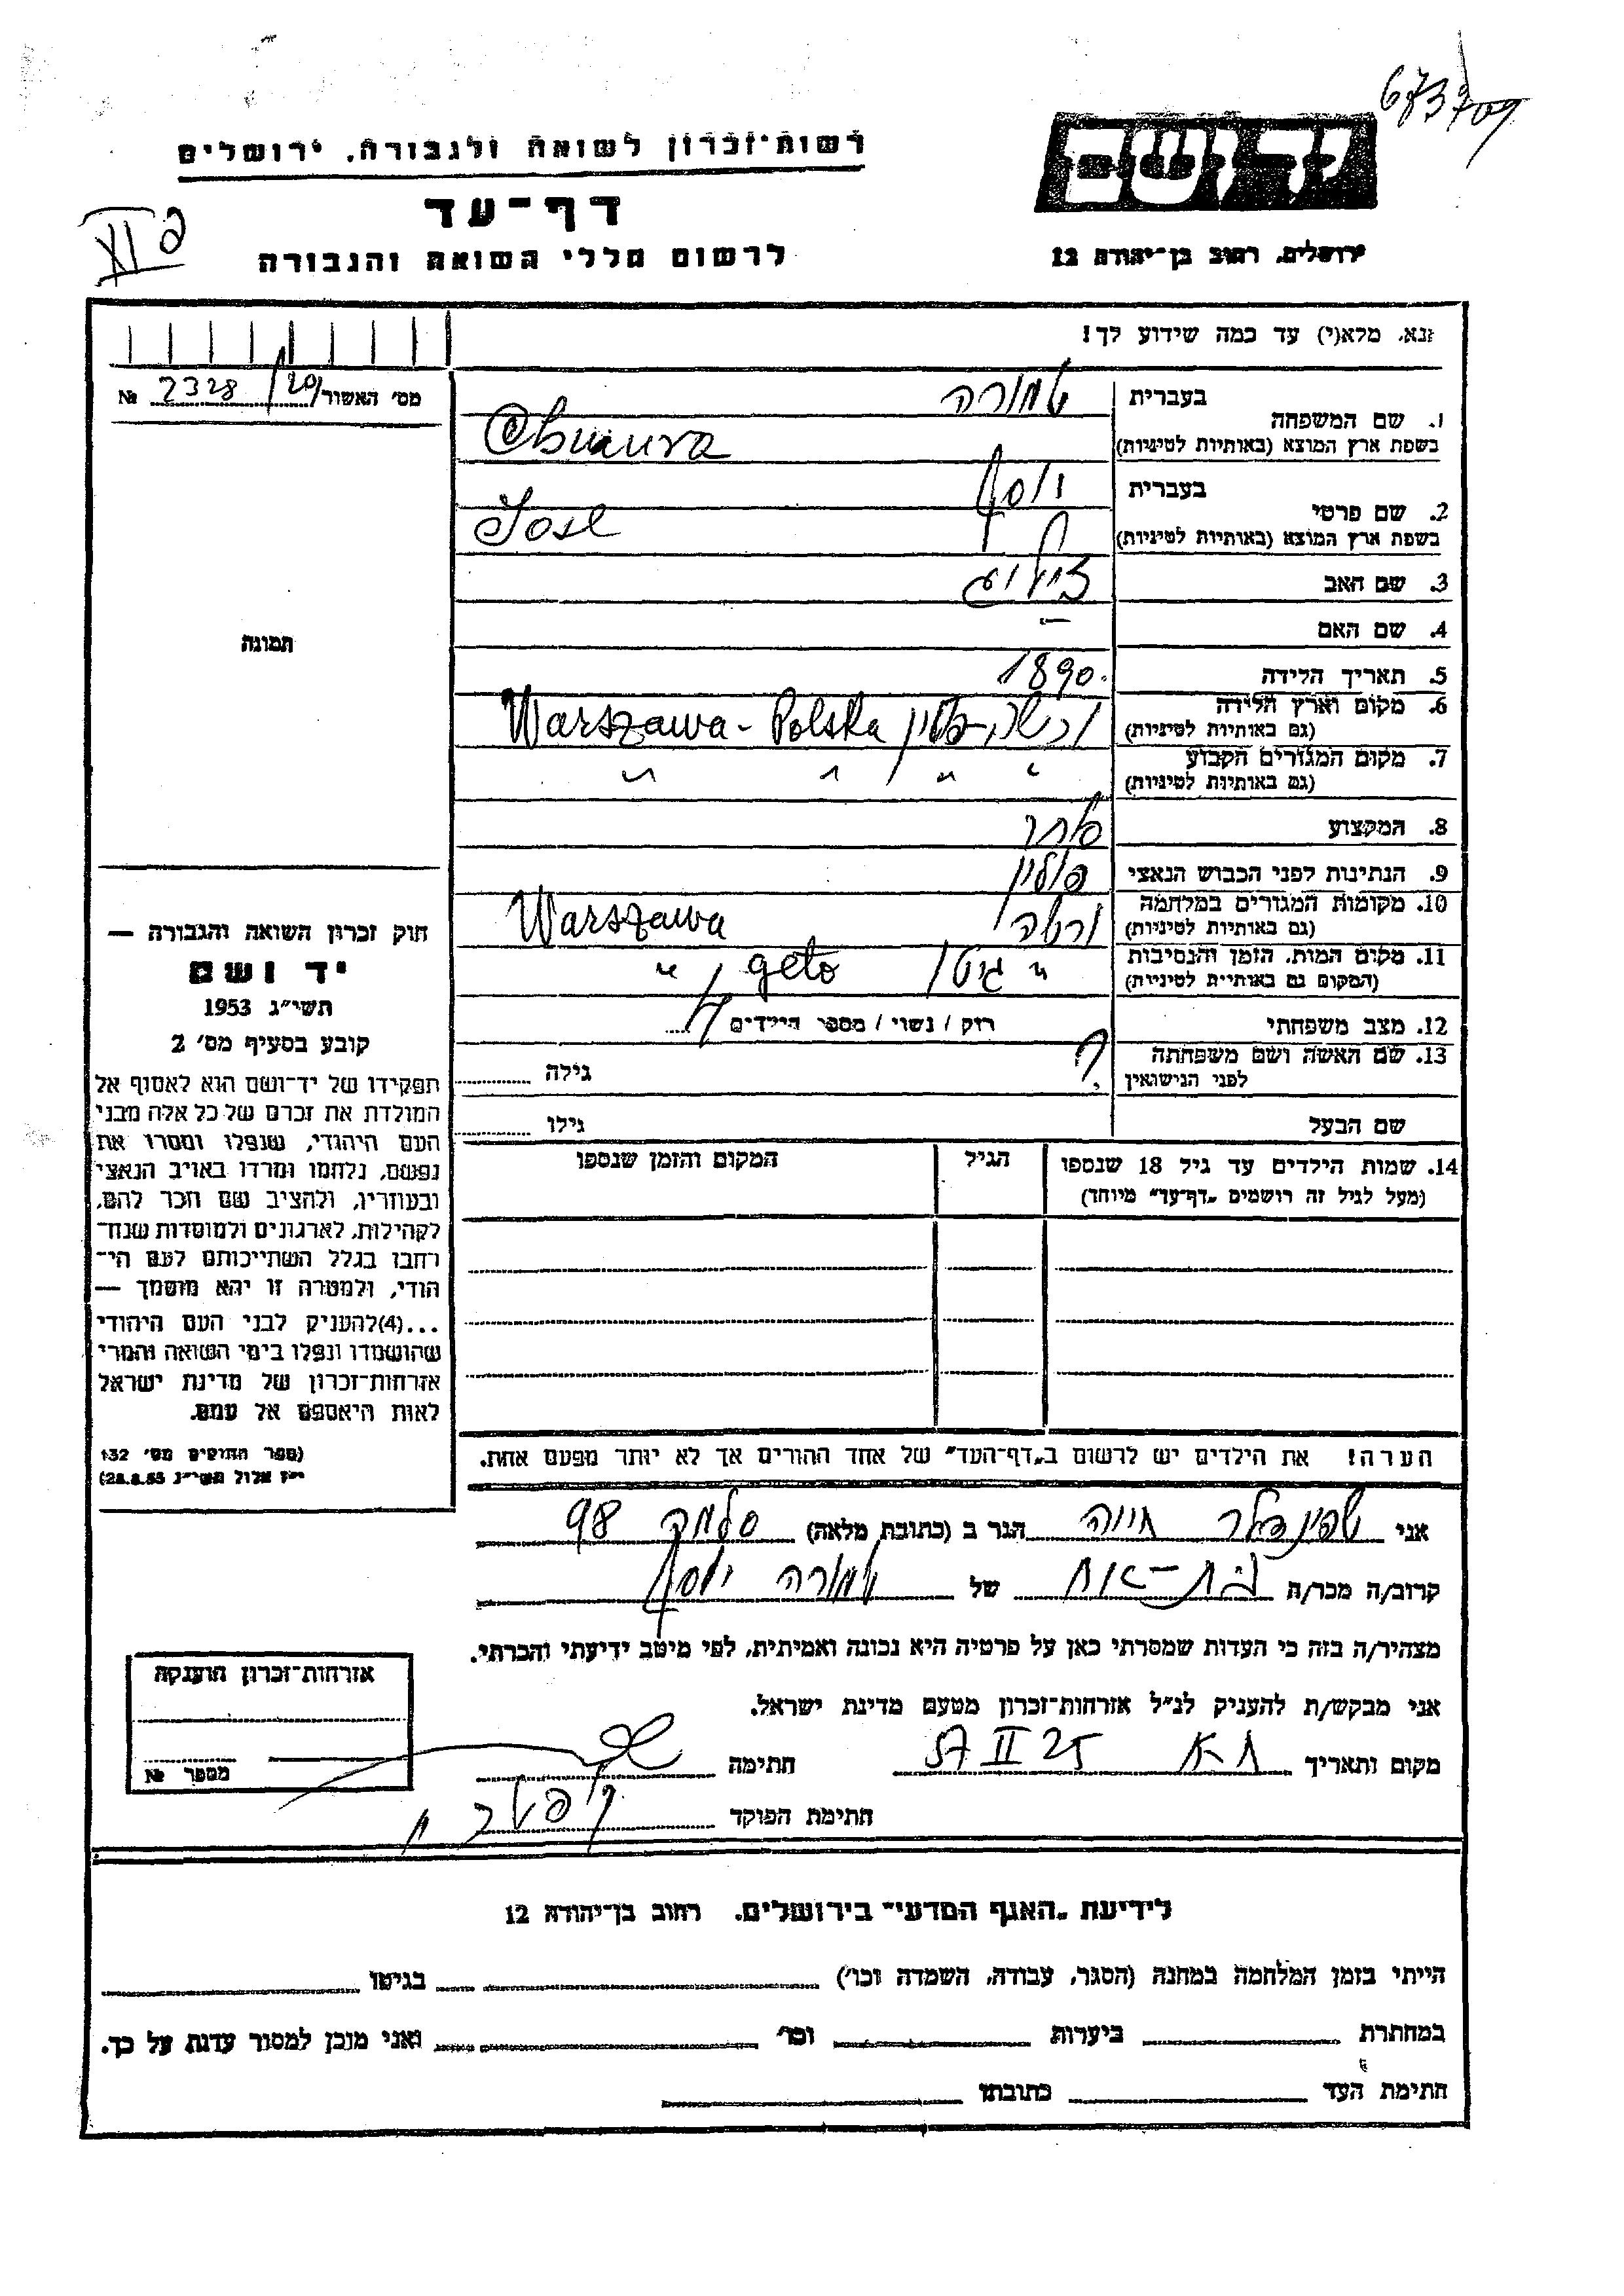 673709
רשות־זכרון לשואה ולגבורה, ירושלים
יד ושם
דף־עד
לרשום חללי השואה והגבורה
ירושלים, רחוב בן־יהודה 12
נא, מלא(י) עד כמה שידוע לך!
מס׳ האשור 20/ 2328 №
1. שם המשפחה
בעברית
בשפת ארץ המוצא (באותיות לטיניות)
2. שם פרטי
בעברית יוסף
בשפת ארץ המוצא (באותיות לטיניות) Josl
3. שם האב
4. שם האם —
5. תאריך הלידה 1890.
6. מקום וארץ הלידה ורשה, פולין Warszawa - Polska
(גם באותיות לטיניות)
7. מקום המגורים הקבוע " " " "
(גם באותיות לטיניות)
8. המקצוע סוחר
9. הנתינות לפני הכבוש הנאצי פולין
10. מקומות המגורים במלחמה ורשה Warszawa
(גם באותיות לטיניות)
11. מקום המות, הזמן והנסיבות " גיטו geto "
(המקום גם באותיות לטיניות)
12. מצב משפחתי רווק / נשוי / מספר הילדים 4
13. שם האשה ושם משפחתה ? גילה
לפני הנישואין
שם הבעל גילו
14. שמות הילדים עד גיל 18 שנספו הגיל המקום והזמן שנספו
(מעל לגיל זה רושמים „דף־עד” מיוחד)
הערה! את הילדים יש לרשום ב„דף־העד” של אחד ההורים אך לא יותר מפעם אחת.
תמונה
חוק זכרון השואה והגבורה —
יד ושם
תשי״ג 1953
קובע בסעיף מס׳ 2
תפקידו של יד־ושם הוא לאסוף אל
המולדת את זכרם של כל אלה מבני
העם היהודי, שנפלו ומסרו את
נפשם, נלחמו ומרדו באויב הנאצי
ובעוזריו, ולהציב שם וזכר להם,
לקהילות, לארגונים ולמוסדות שנח־
רבו בגלל השתייכותם לעם הי־
הודי, ולמטרה זו יהא מוסמך —
...(4)להעניק לבני העם היהודי
שהושמדו ונפלו בימי השואה והמרי
אזרחות־זכרון של מדינת ישראל
לאות היאספם אל עמם.
(ספר החוקים מס׳ 132
י״ז אלול תשי״ג 28.8.53)
אני שפינדלר חיה הגר ב (כתובת מלאה) סלמה 98
קרוב/ה מכר/ה בת-אח של יוסף
מצהיר/ה בזה כי העדות שמסרתי כאן על פרטיה היא נכונה ואמיתית, לפי מיטב ידיעתי והכרתי.
אני מבקש/ת להעניק לנ״ל אזרחות־זכרון מטעם מדינת ישראל.
מקום ותאריך ת״א 25 II 57 חתימה
חתימת הפוקד
אזרחות־זכרון הוענקה
מספר №
לידיעת „האגף המדעי” בירושלים, רחוב בן־יהודה 12
הייתי בזמן המלחמה במחנה (הסגר, עבודה, השמדה וכו׳) בגיטו
במחתרת ביערות וכו׳ ואני מוכן למסור עדות על כך.
חתימת העד כתובתו